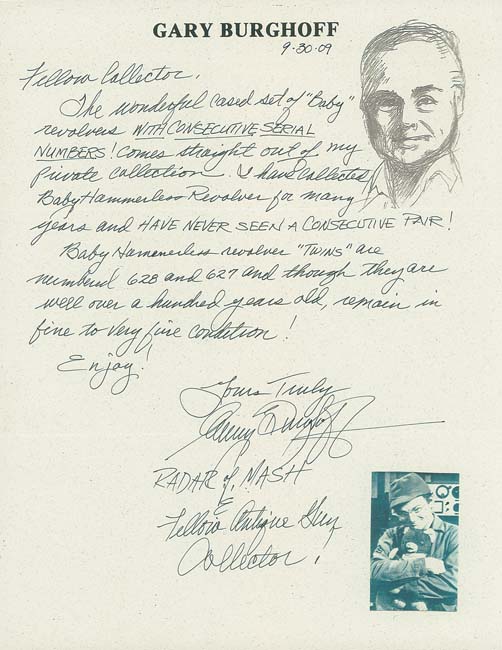 GARY BURGHOFF
9-30-09
Fellow Collector,
The wonderful cased set of "Baby"
revolvers WITH CONSECUTIVE SERIAL
NUMBERS! Comes straight out of my
private collection. I have collected
Baby Hammerless Revolver for many
years and HAVE NEVER SEEN A CONSECUTIVE PAIR!
Baby Hammerless revolver "TWINS" are
numbered 628 and 627 and though they are
well over a hundred years old, remain in
fine to very fine condition!
Enjoy!
Yours Truly
Gary Burghoff
RADAR of MASH
&
Fellow Antique Gun
Collector!